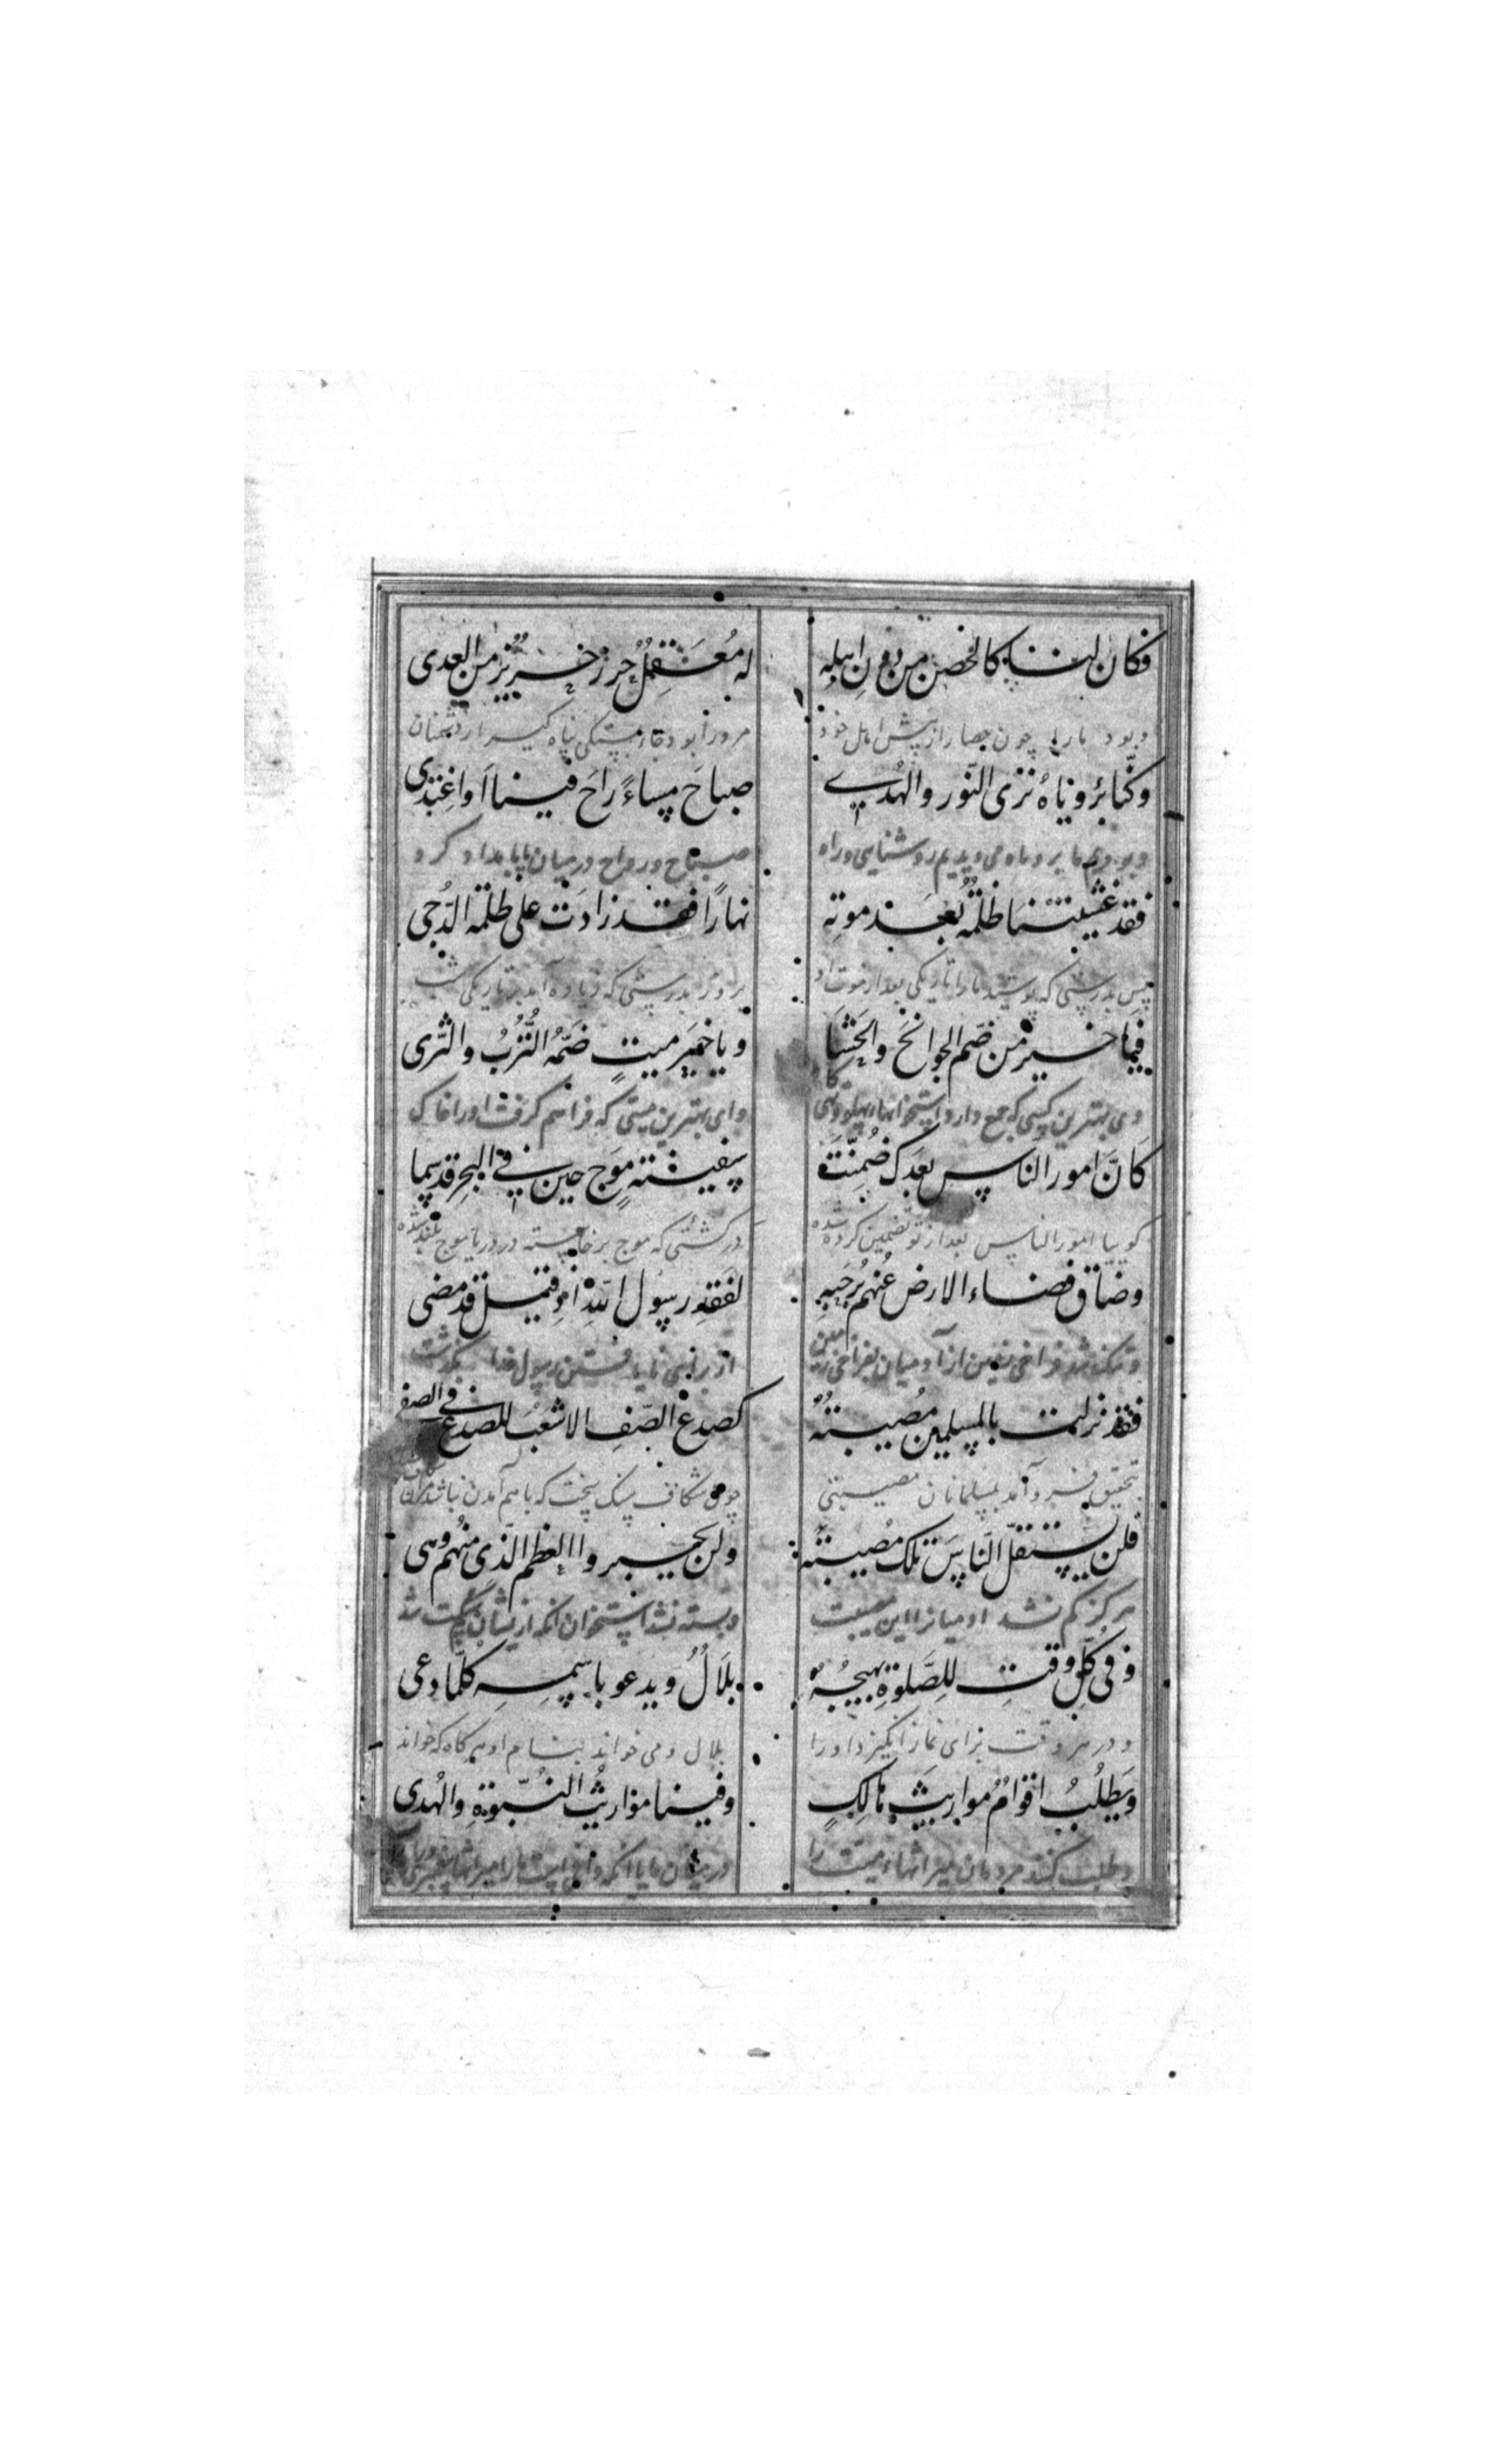 فكان لنا كالحصن من دون اهله
له معقل حرز حریز من العدی
و بود ما را چون حصار از پیش اهل خود
مرو را بود قلعه پناه گیر از دشمنان
وكنا برؤیاه نری النور والهدی
صباح مساءً راح فینا أو اغتدی
و بودیم ما بروءاه می دیدیم روشنایی و راه
صباح و رواح در میان ما یا بامداد کرد
فقد غشیتنا ظلمةٌ بعد موته
نهارًا فقد زادت علی ظلمة الدُّجی
پس بدرستی که پوشید ما را تاریکی بعد از موت او
بروز بدرستی که زیاده آمد بر تاریکی شب
فیا خیر من ضم الجوانح والحشا
ویا خیر میتٍ ضمّه التُّربُ والثری
وی بهترین کسی که جمع دارد استخوانهاء پهلو
وای بهترین میتی که فراهم گرفت او را خاک
كانّ امور الناس بعدك ضُمنت
سفینة موج حین فی البحر قد سما
گوییا امور الناس بعد از تو تضمین کرده شده
در کشتی که موج برخاسته در دریا موج بلند شده
وضاق فضاء الارض عنهم برحبه
لفقد رسول الله اذ قیل قد مضی
و تنک شد فراخی زمین از آدمیان بفراخی زمین
از برای نایافتن رسول خدا بگذشت
فقد نزلت بالمسلمین مُصیبةٌ
كصدع الصف لا شعب للصدع فی الصف
بتحقیق فرو آمد بمسلمانان مصیبتی
چون شکاف سنک سخت که باهم آمدن نباشد
فلن یستقلّ الناسَ تلك مُصیبةً
ولن یجبروا العظم الذی منهم وهی
هرکز کم نشد آدمیانرا این مصیبت
و بسته نشد استخوان انکه از یشان شکست شد
وفی كلّ وقتٍ للصلوة یهیجُه
بلالٌ ویدعو باسمه كلّما دعی
و در هر وقت برای نماز انگیزد او را
بلال و می خواند بنام او هرگاه که خواند
ویطلُبُ اقوامٌ مواریث هالكٍ
وفینا مواریث النُبوّة والهدی
و طلب کنند مردمان میراثهاء میت را
در میان ما